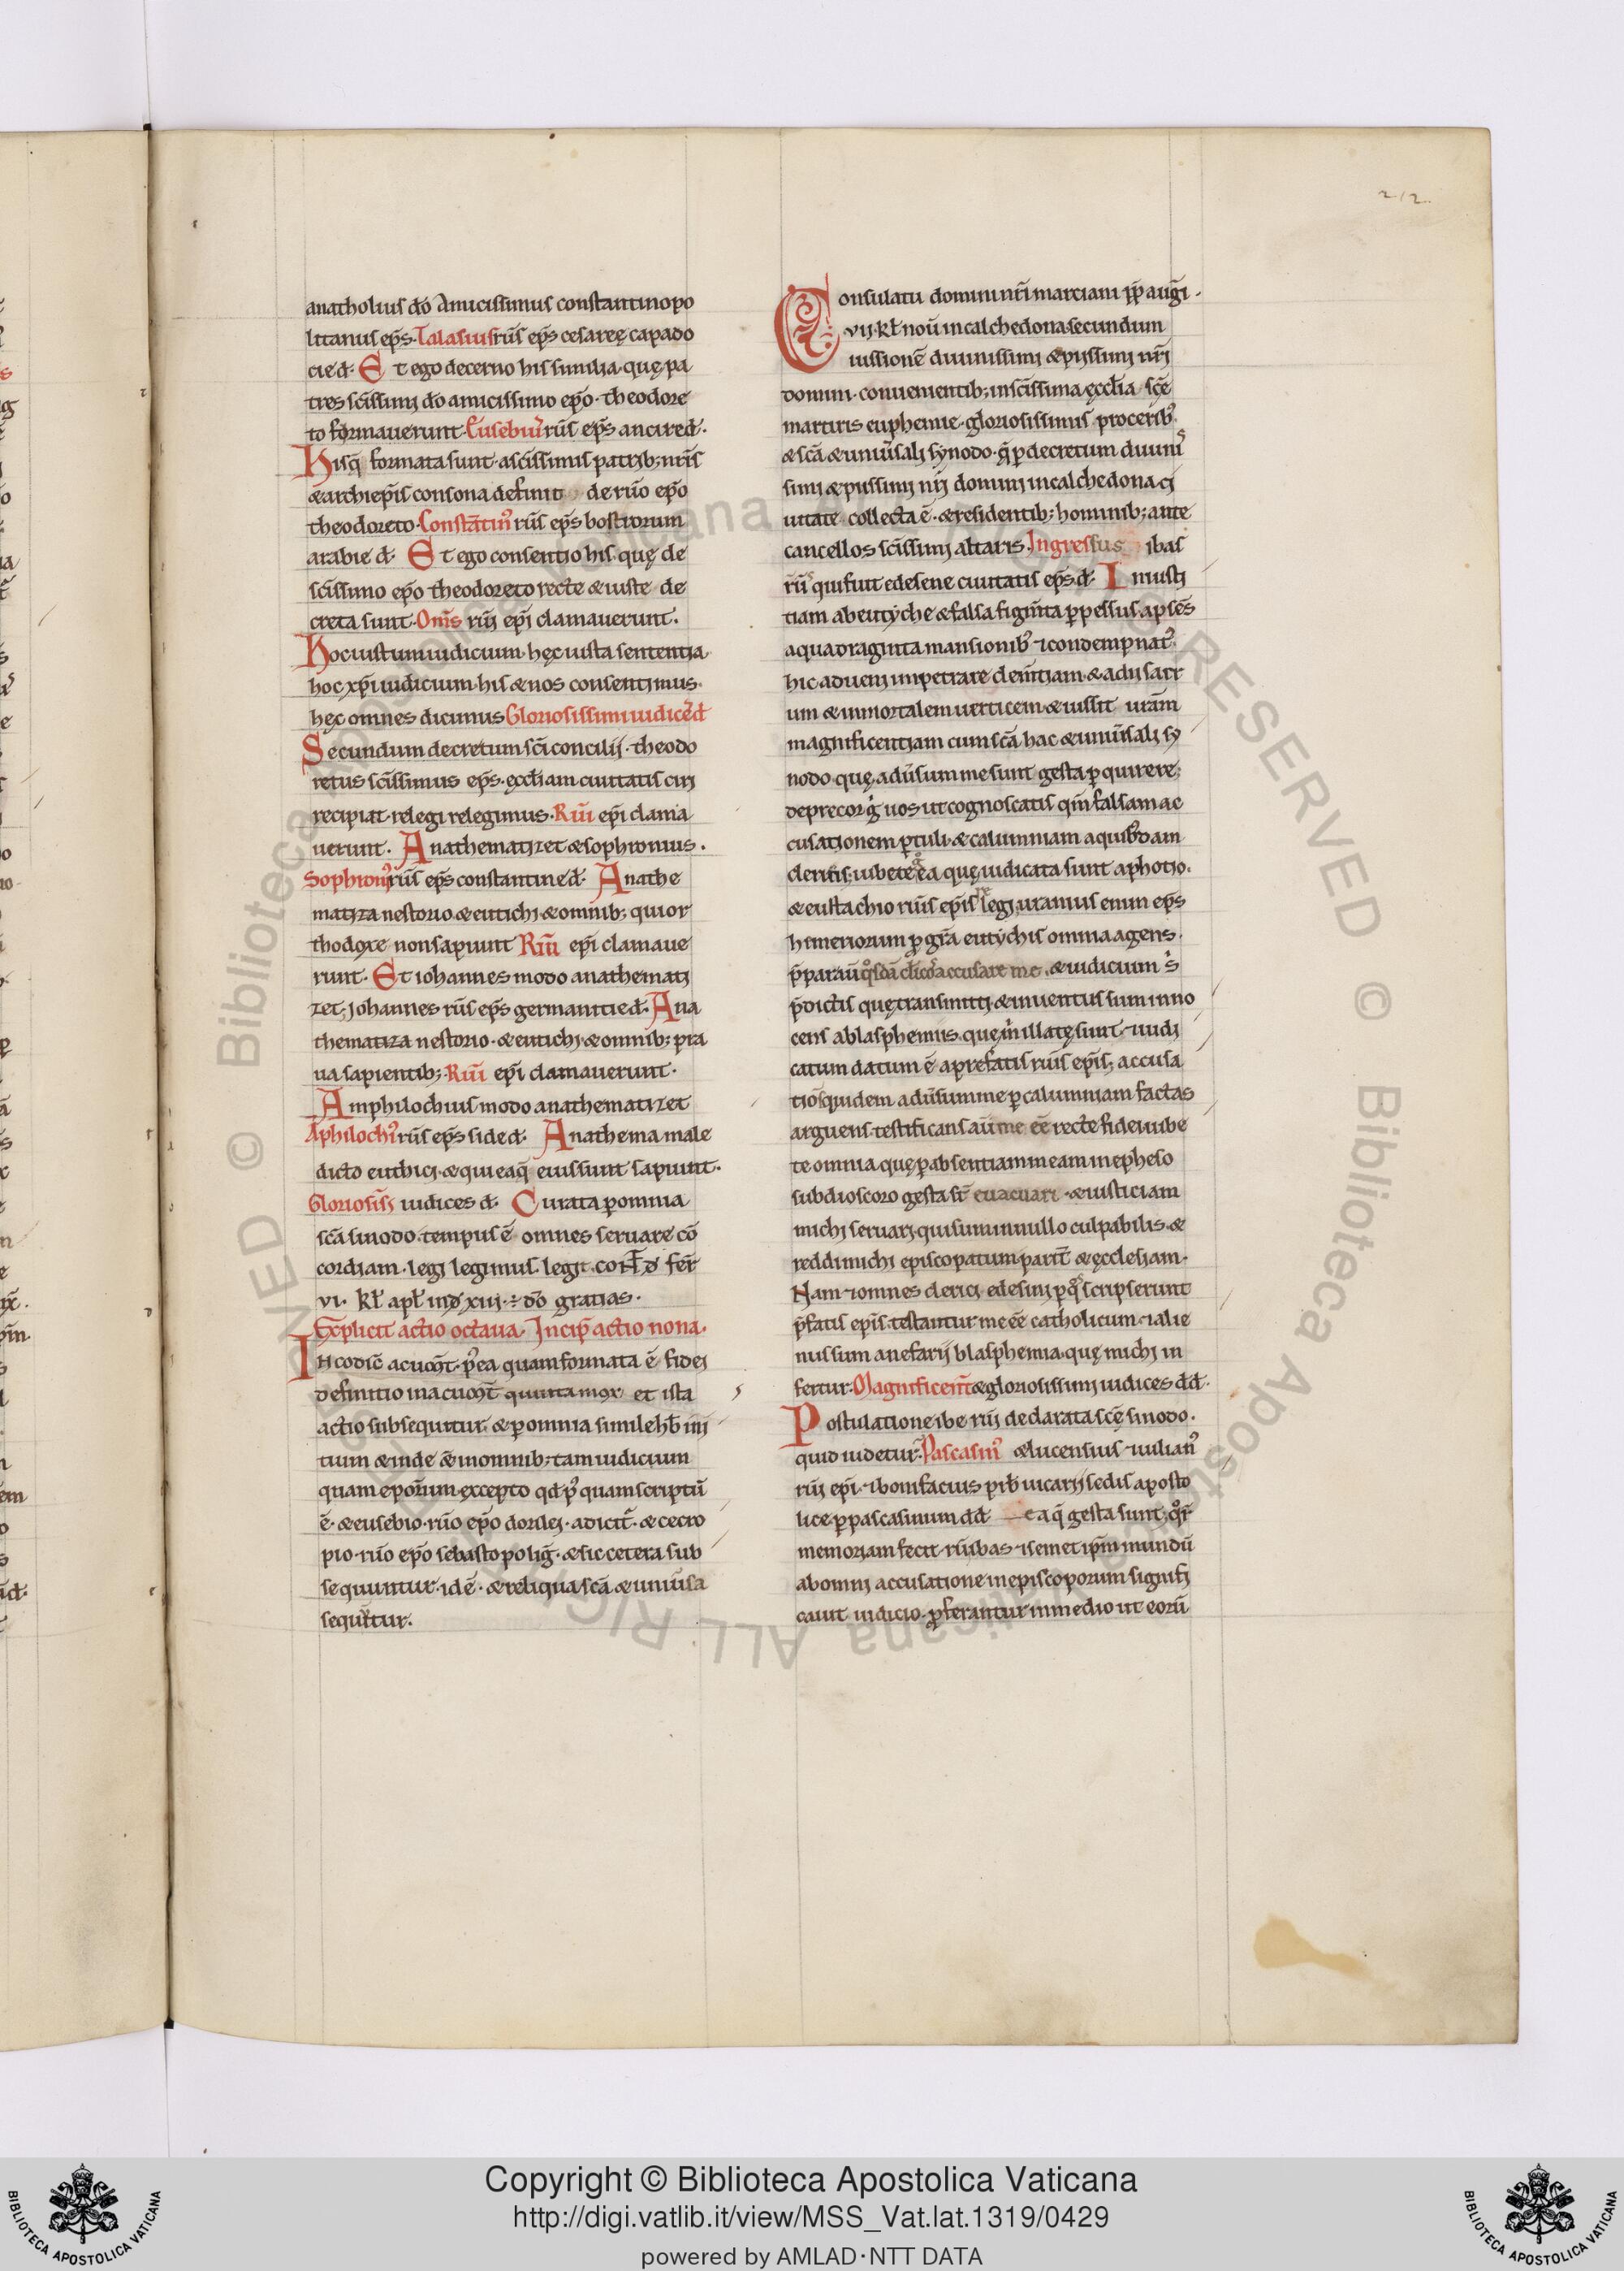 212.
anatholius do Amicissimus constantinopo
litanus eps̄. Talasius rūs eps̄ cesareę capado
cie d̄. Et ego decerno his similia quę pa
tres sc̄issimi do amicissimo ep̄o. theodore
to formauerunt. Eusebiꝰ rūs eps̄ ancire d̄.
Hisq̄ formata sunt. a sc̄issimis patrib; nr̄is
& archiep̄is consona definit de rūo ep̄o
theodoreto. Constātinꝰ rūs eps̄ bostrorum
arabie d̄. Et ego consentio his quę de
sc̄issimo ep̄o theodoreto recte & iuste de
creta sunt. Om̄s rūi ep̄i clamauerunt.
Hoc iustum iudicium. hęc iusta sententia.
hoc xp̄i iudicium. his & nos consentimus.
hęc omnes dicimus Gloriosissimi iudices d̄
Secundum decretum sc̄i concilii. theodo
retus sc̄issimus eps̄. ęccl̄iam ciuitatis ciri
recipiat. relegi relegimus. Rūi ep̄i clama
uerunt. Anathematizet & sophronius.
Sophronꝰ rūs eps̄ constantine d̄. Anathe
matiza nestorio. & eutichi. & omnib; qui or
thodoxe non sapiunt Rūi ep̄i clamaue
runt. Et iohannes modo anathemati
zet. Johannes rūs eps̄ germanitie d̄. Ana
thematiza nestorio. & eutichi. & omnib; pra
ua sapientib; Rūi ep̄i clamauerunt.
Amphilochius modo anathematizet
Aphilochiꝰ rūs eps̄ side d̄. Anathema male
dicto euthici. & qui eaq̄ eius sunt sapiunt.
Gloriosis̄i iudices d̄. Curata ꝑ omnia
sc̄a sinodo. tempus ē omnes seruare cō
cordiam. legi legimus. legit. fer̄
vi. kl̄ apl̄ ind xiii. ÷ dō gratias.
Explicit actio octaua. Incip̄ actio nona.
In codic̄ acumit̄. p̄ ea quam formata ē fidei
definitio in acumit̄ quinta mox et ista
actio subsequitur. & ꝑ omnia simile hb̄ ini
tium & inde & in omnib; tam iudicium
quam epōrum. excepto qd̄ pꝰ quam scriptū
ē. & eusebio. rūo ep̄o dorilei. adicit̄. & cecro
pio. rūo ep̄o sebastopoliḡ. & sic cetera sub
sequuntur. idē. & reliqua sc̄a & uniūsa
sequitur.
Consulatu domini nr̄i marciani ꝑp̄ augi.
vii. kl̄ nou in calchedona secundum
iussionē diuinissimi & piissimi nr̄i
domini. conuenientib; in sc̄issima ęccl̄ia sc̄e
martiris euphemie. gloriosissimis procerib;
& sc̄a & uniūsali synodo. q̄ ꝑ decretum diuinis
simi & piissimi nr̄i domini in calchedona ci
uitate collecta ē. & residentib; hominib; ante
cancellos sc̄issimi altaris. Ingressus ibas
rūs qui fuit edesene ciuitatis eps̄. d̄. Iniusti
tiam ab eutyche & falsa figm̄ta ꝑpessus. apsēs
a quadraginta mansionibꝰ ⁊ condempnatꝰ.
hic adueni impetrare clem̄tiam. & adii sacr
um & inmortalem uerticem. & iussit urām
magnificentiam cum sc̄a hac & uniūsali sy
nodo quę adūsum me sunt gesta ꝑquirere.
deprecor g̊ uos ut cognoscatis qm̄ falsam ac
cusationem ꝑtuli. & calumniam a quibꝰdam
clericis. iubete ea quę iudicata sunt a photio.
& eustachio rūis ep̄is legi. uranius enim eps̄
himeriorum ꝓ gr̄a eutychis omnia agens.
p̄parau qꝰsdā cl̄icos accusare me. & iudicium s̄
p̄dictis quę transmitti. & inuentus sum inno
cens a blasphemiis. quę m̄ illatę sunt. ⁊ iudi
catum datum ē a prefatis rūis ep̄is; accusa
tiōs quidem adūsum me ꝑ calumniam factas
arguens. testificans aū me eē recte fidei. iube
te omnia quę ꝑ absentiam meam in epheso
sub dioscoro gesta st̄ euacuari. & iusticiam
michi seruari. qui sum in nullo culpabilis. &
reddi michi episcopatum parit̄ & ęcclesiam.
Nam ⁊ omnes clerici edesini ꝑ qꝰ scripserunt
p̄fatis ep̄is. testantur me eē catholicum. ⁊ alie
nus sum a nefarii blasphemia. quę michi in
fertur. Magnificent̄ & gloriosissimi iudices d̄d̄.
Postulatione ibe rūi declarata sc̄ę sinodo.
quid uidetur. Pascasinꝰ & lucensius ⁊ iulianꝰ
rūi ep̄i. ⁊ bonifacius prb̄ uicarii sedis aposto
lice ꝑ pascasinum d̄d̄ ea q̄ gesta sunt. qꝰr̄
memoriam fecit. rūs ibas. ⁊ semet ip̄m mundū
ab omni accusatione in episcoporum signifi
cauit iudicio. ꝓferantur in medio ut eorū
Copyright © Biblioteca Apostolica Vaticana
http://digi.vatlib.it/view/MSS_Vat.lat.1319/0429
powered by AMLAD·NTT DATA
BIBLIOTECA APOSTOLICA VATICANA
BIBLIOTECA APOSTOLICA VATICANA